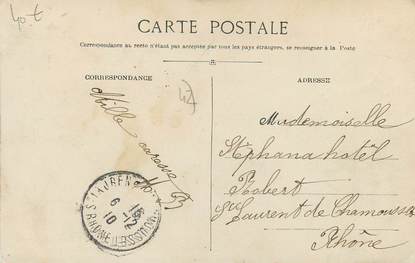 40 €
CARTE POSTALE
Correspondance au recto n'étant pas acceptée par tous les pays étrangers, se renseigner à la Poste
CORRESPONDANCE
ADRESSE
Mille
caresses
Mademoiselle
Stéphana hôtel
Robert
St Laurent de Chamousset
Rhône
6-12
10